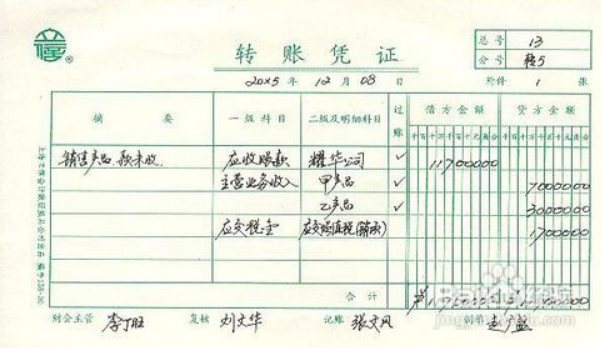 立信®
转账凭证
总号 13
分号 转5
20X5 年 12 月 08 日
附件 1 张
摘要 一级科目 二级及明细科目 过账 借方金额 贷方金额
千百十万千百十元角分 千百十万千百十元角分
销售产品,款未收 应收账款 耀华公司 ✓ 11700000
主营业务收入 甲产品 ✓ 7000000
乙产品 ✓ 3000000
应交税金 应交增值税(销项) 1700000
合计
财会主管 李丁旺 复核 刘文华 记账 张文风 制单
Baidu经验